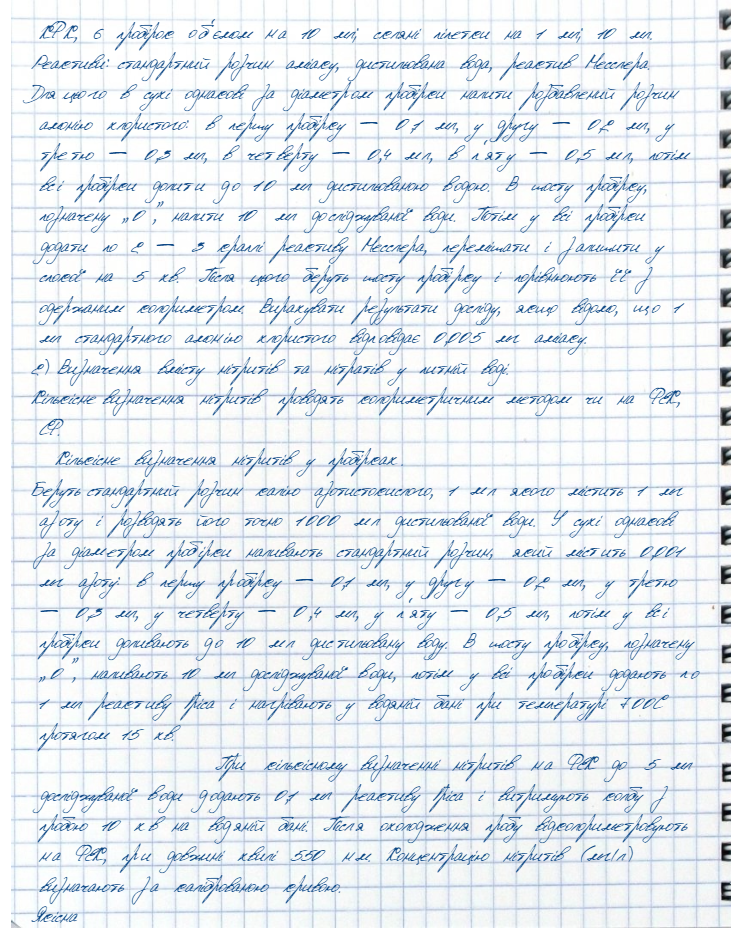 КФК, 6 пробірок об'ємом на 10 мл; скляні піпетки на 1 мл, 10 мл.
Реактиви: стандартний розчин аміаку, дистильована вода, реактив Несслера.
Для цього в сухі однакові за діаметром пробірки налити розбавлений розчин
амонію хлористого: в першу пробірку — 0,1 мл, у другу — 0,2 мл, у
третю — 0,3 мл, в четверту — 0,4 мл, в п'яту — 0,5 мл, потім
всі пробірки долити до 10 мл дистильованою водою. В шосту пробірку,
позначену „О", налити 10 мл досліджуваної води. Потім у всі пробірки
додати по 2 — 3 краплі реактиву Несслера, перемішати і залишити у
спокої на 5 хв. Після цього беруть шосту пробірку і порівнюють її з
одержаним колориметром. Вирахувати результати досліду, якщо відомо, що 1
мл стандартного амонію хлористого відповідає 0,005 мг аміаку.
2) Визначення вмісту нітритів та нітратів у питній воді.
Кількісне визначення нітритів проводять колориметричним методом чи на ФЕК,
СФ.
Кількісне визначення нітритів у пробірках.
Беруть стандартний розчин калію азотистокислого, 1 мл якого містить 1 мг
азоту і розводять його точно 1000 мл дистильованої води. У сухі однакові
за діаметром пробірки наливають стандартний розчин, який містить 0,001
мг азоту: в першу пробірку — 0,1 мл, у другу — 0,2 мл, у третю
— 0,3 мл, у четверту — 0,4 мл, у п'яту — 0,5 мл, потім у всі
пробірки доливають до 10 мл дистильовану воду. В шосту пробірку, позначену
„О", наливають 10 мл досліджуваної води, потім у всі пробірки додають по
1 мл реактиву Гріса і нагрівають у водяній бані при температурі 700С
протягом 15 хв.
При кількісному визначенні нітритів на ФЕК до 5 мл
досліджуваної води додають 0,1 мл реактиву Гріса і витримують колбу з
пробою 10 хв на водяній бані. Після охолодження пробу відколориметровують
на ФЕК, при довжині хвилі 550 нм. Концентрацію нітритів (мг/л)
визначають за каліброваною кривою.
Якісна